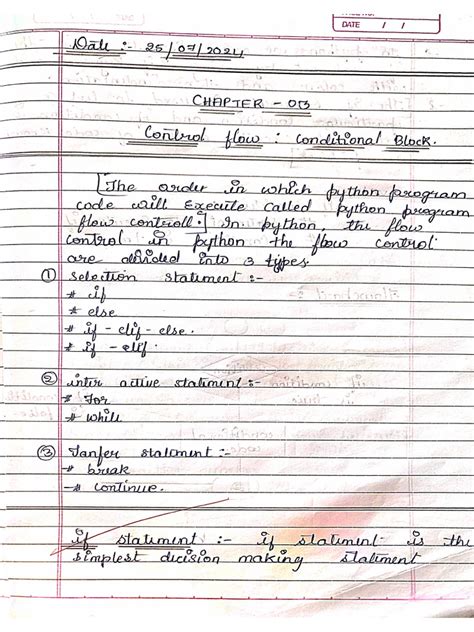 DATE / /
Date :- 25/07/2024
CHAPTER - 03
Control flow : conditional Block.
[The order in which python program
code will Execute called python program
flow controll.] In python, the flow
control in python the flow control
are divided into 3 types.
① selection statement :-
* if
* else
* if - elif - else.
* if - elif.
② inter active statiment :-
* For
* while
③ Tanfer statement :-
* break
* continue.
if statument :- if statiment is the
simplest dicision making statiment